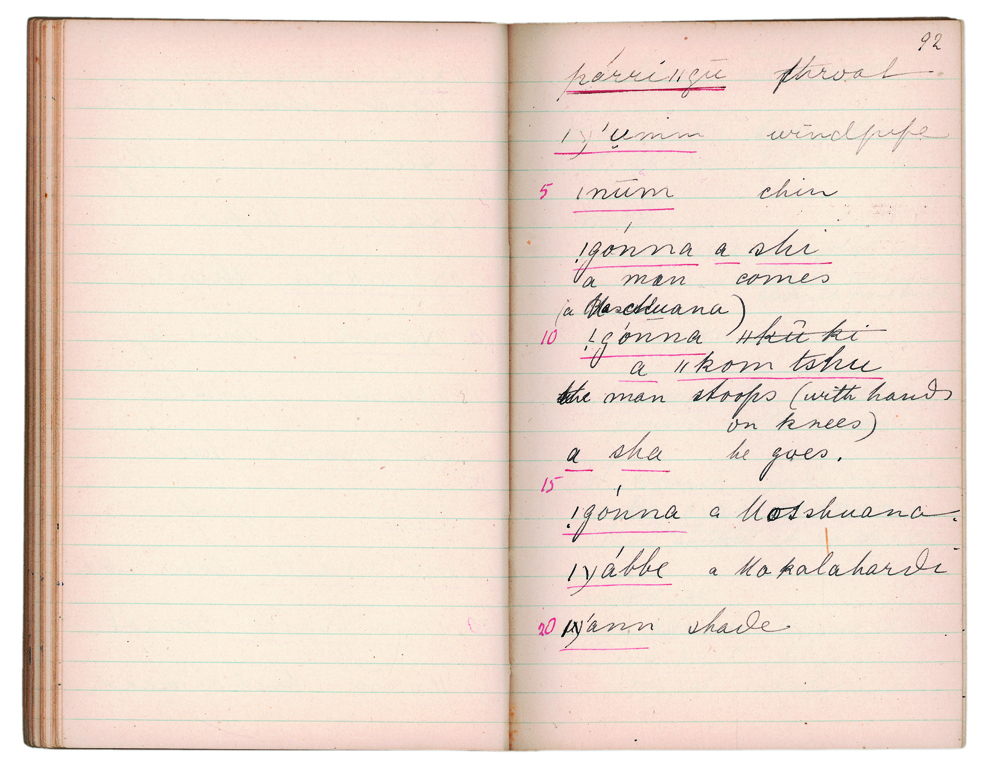 92
párriǁgū throat.
ǀy̔ụmm windpipe
5 ǀnūm chin
!gónna a shi
a man comes
(a Maschuana)
10 !gónna ǁkū ki
a ǁkom tshu
the man stoops (with hands
on knees)
a sha he goes.
15
!gónna a Motshuana.
ǀyábbe a Makalahardi
20 ǀyann shade